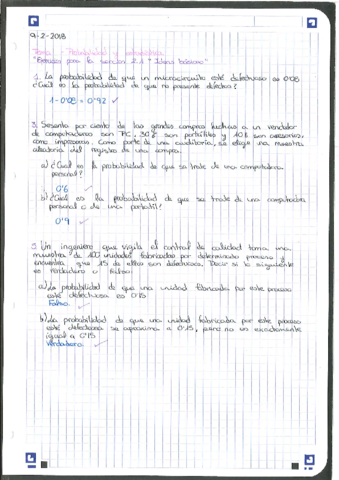 9-2-2018
Tema : Probabilidad y estadística
"Ejercicios para la sección 2.1 "
1. La probabilidad de que un microcircuito esté defectuoso es 0'08
¿Cuál es la probabilidad de que no presente defecto?
1 - 0'08 = 0'92 ✓
3. Sesenta por ciento de las grandes compras hechas a un vendedor
de computadoras son PC, 30% son portátiles y 10% son accesorios,
como impresoras. Como parte de una auditoría, se elige una muestra
aleatoria del registro de una compra.
a) ¿Cuál es la probabilidad de que se trate de una computadora
personal?
0'6 ✓
b) ¿Cuál es la probabilidad de que se trate de una computadora
personal o de una portátil?
0'9 ✓
5. Un ingeniero que vigila el control de calidad toma una
muestra de 100 unidades fabricadas por determinado proceso y
encuentra que 15 de ellas son defectuosas. Decir si lo siguiente
es verdadero o falso:
a) La probabilidad de que una unidad fabricada por este proceso
esté defectuosa es 0'15
Falso. ✓
b) La probabilidad de que una unidad fabricada por este proceso
esté defectuosa se aproxima a 0'15, pero no es exactamente
igual a 0'15
Verdadero. ✓